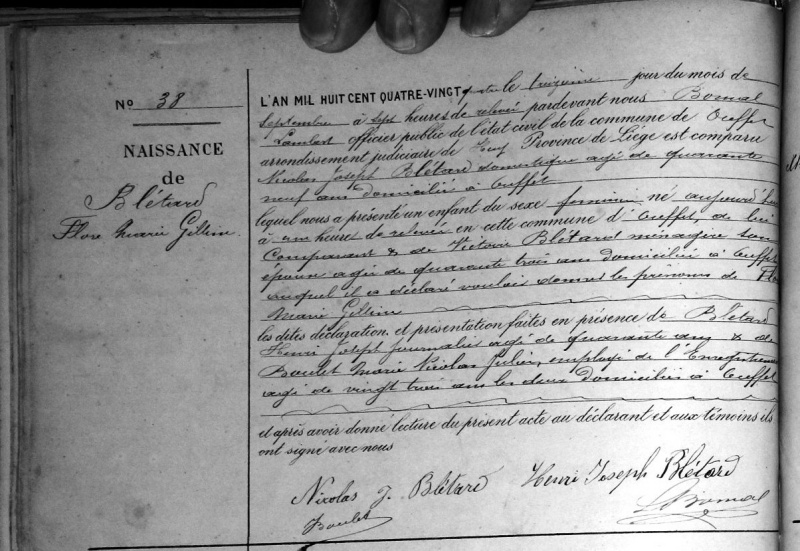 No 38
NAISSANCE
de
Blétard
Flore Marie Gillin.
L'AN MIL HUIT CENT QUATRE-VINGT le treizième jour du mois de
Septembre à sept heures de relevée pardevant nous Bomal
Lambert officier public de l'état civil de la commune de Oeffet
arrondissement judiciaire de Huy Provence de Liège est comparu
Nicolas Joseph Blétard domestique agé de quarante
neuf ans domicilié à Ouffet
lequel nous a présenté un enfant du sexe feminin né aujourd'hui
à une heure de relevée en cette commune d'Oeuffet, de lui
Comparant & de Victoire Blétard ménagère son
épouse agée de quarante trois ans domiciliée à Ouffet
auquel il a déclaré vouloir donner les prénoms de Flo
Marie Gillin
les dites déclaration et présentation faites en présence de Blétard
Henri Joseph Journalier agé de quarante ans & de
Boulet Marie Nicolas Julien, employé de l'Enregistrement
agé de vingt trois ans les deux domiciliés à Ouffet
et après avoir donné lecture du présent acte au déclarant et aux témoins ils
ont signé avec nous
Nixolas J. Blétard Henri Joseph Blétard
Boulet LBomal